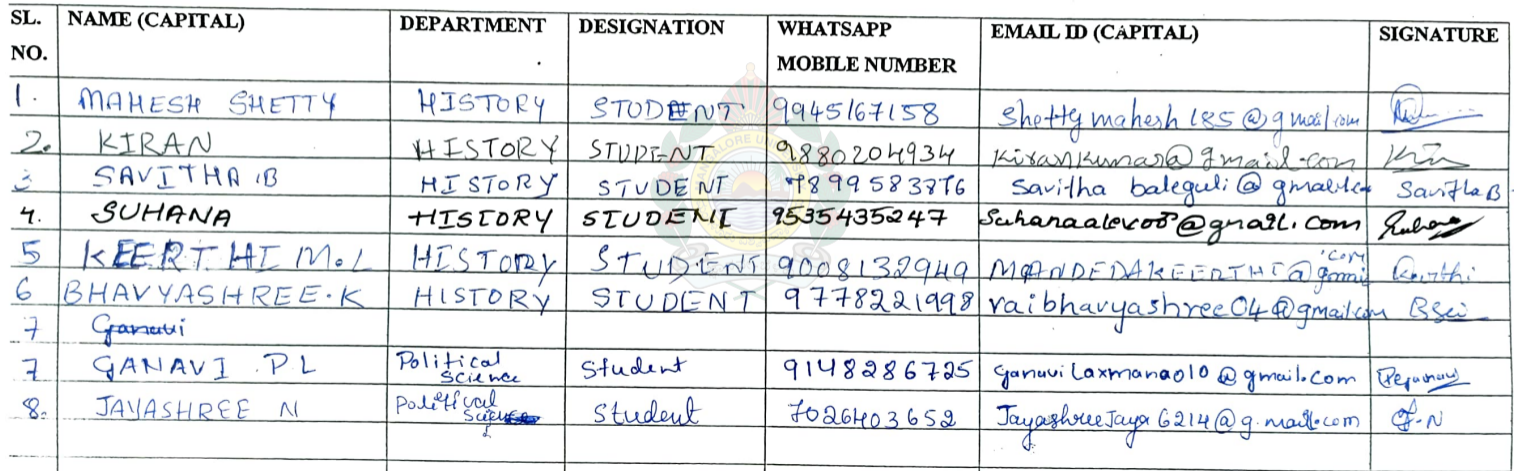 SL. NO. NAME (CAPITAL) DEPARTMENT DESIGNATION WHATSAPP MOBILE NUMBER EMAIL ID (CAPITAL) SIGNATURE
1. MAHESH SHETTY HISTORY STUDENT 9945167158 shettymahesh185@gmail.com
2. KIRAN HISTORY STUDENT 9880204934 kirankumar@gmail.com
3 SAVITHA.B HISTORY STUDENT 7899583876 savitha baleguli@gmail.com Savitha B
4. SUHANA HISTORY STUDENT 9535435247 @gmail.com
5 KEERTHI M.L HISTORY STUDENT 9008132949 MANDEDAKEERTHI@gmail.com Keerthi
6 BHAVYASHREE.K HISTORY STUDENT 9778221998 raibhavyashree04@gmail.com
7 Ganavi
7 GANAVI . P L Political Science Student 9148286725 ganavilaxmana010@gmail.com
8. JAYASHREE N Political Science Student 7026403652 JayashreeJaya6214@g.mail.com J.N